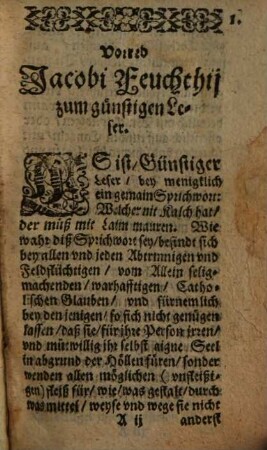 1.
Vorred
Jacobi Feuchthij
zum günstigen Le-
ser.
ES ist / Günstiger
Leser / bey menigklich
ein gemain Sprichwort:
Welcher nit Kalch hat /
der müß mit Laim mauren. Wie
wahr diß Sprichwort sey / befindt sich
bey allen vnd jeden Abtrinnigen vnd
Feldflüchtigen / vom Allein selig-
machenden / warhafftigen / Catho-
lischen Glauben / vnd fürnemlich
bey den jenigen / so sich nicht genügen
lassen / daß sie / für ihre Person irren /
vnd mütwillig jhr selbst aigne Seel
in abgrund der Höllen füren / sonder
wenden allen möglichen ( vnfleißi-
gen) fleiß für / wie / was gestalt / durch
was mittel / weyse vnd wege sie nicht
A ij anderst